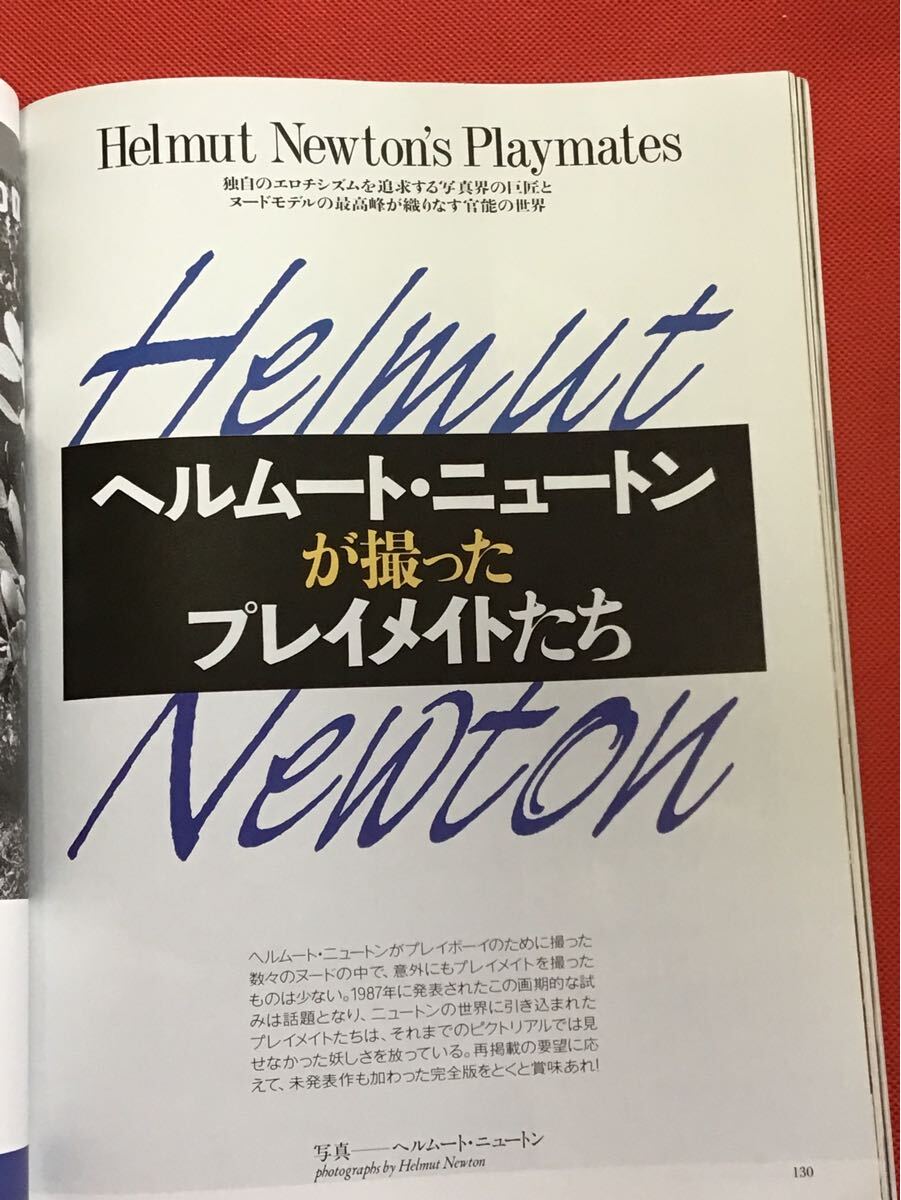 Helmut Newton's Playmates
独自のエロチシズムを追求する写真界の巨匠と
ヌードモデルの最高峰が織りなす官能の世界
Helmut
ヘルムート・ニュートン
が撮った
プレイメイトたち
Newton
ヘルムート・ニュートンがプレイボーイのために撮った
数々のヌードの中で、意外にもプレイメイトを撮った
ものは少ない。1987年に発表されたこの画期的な試
みは話題となり、ニュートンの世界に引き込まれた
プレイメイトたちは、それまでのピクトリアルでは見
せなかった妖しさを放っている。再掲載の要望に応
えて、未発表作も加わった完全版をとくと賞味あれ!
写真——ヘルムート・ニュートン
photographs by Helmut Newton
130